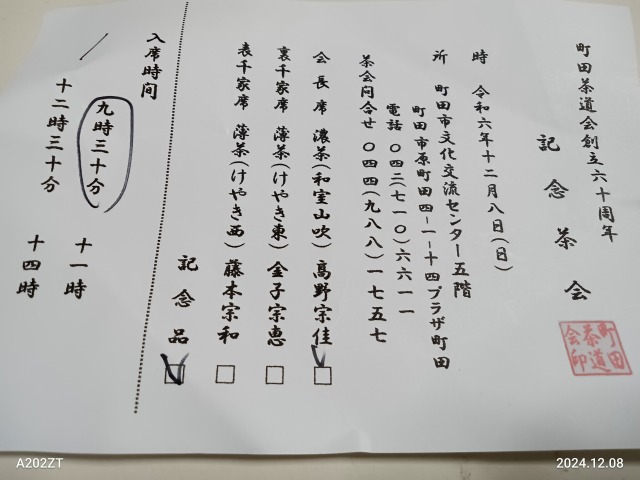 町田茶道会創立六十周年
記念茶会
町田茶道会印
時 令和六年十二月八日(日)
所 町田市文化交流センター五階
町田市原町田四-一-十四プラザ町田
電話 〇四二(七一〇)六六一一
茶会問合せ 〇四四(九八八)一七五七
会長席 濃茶(和室山吹)高野宗佳 □
裏千家席 薄茶(けやき東)金子宗恵 □
表千家席 薄茶(けやき西)藤本宗和 □
記念品 □
入席時間
九時三十分 十一時
十二時三十分 十四時
A202ZT
2024.12.08